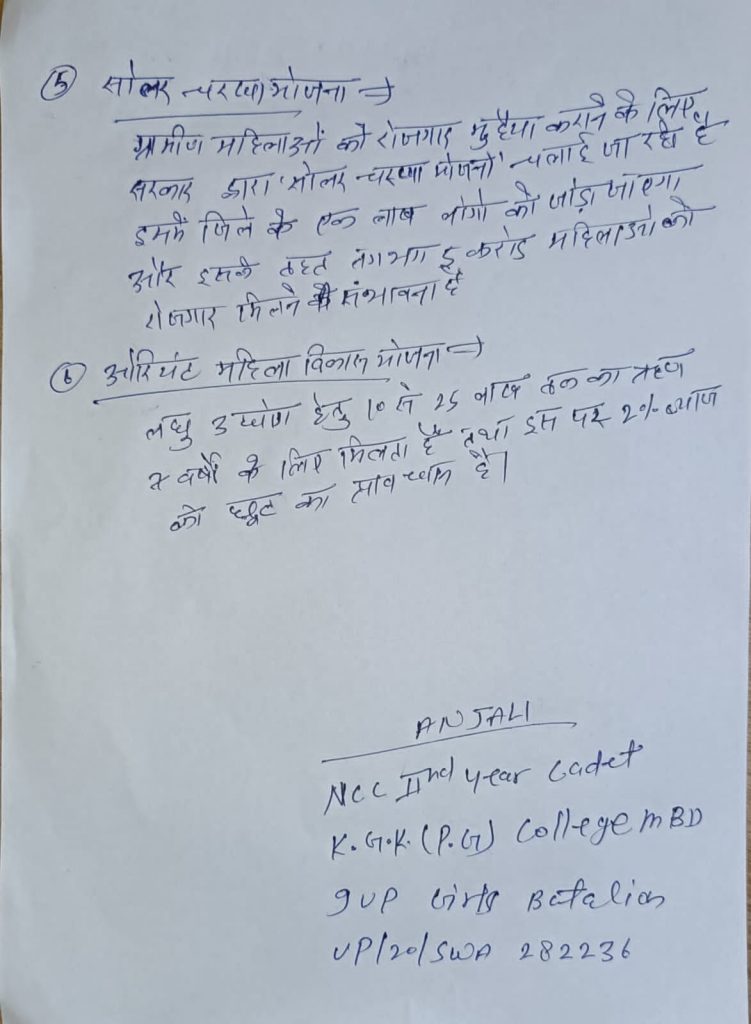 ⑤ सोलर चरखा योजना →
ग्रामीण महिलाओं को रोजगार मुहैया कराने के लिए
सरकार द्वारा 'सोलर चरखा योजना' चलाई जा रही है
इसमें जिले के एक लाख लोगो को जोड़ा जाएगा
और इसके तहत लगभग करोड़ महिलाओ को
रोजगार मिलने की संभावना है
⑥ ओरियंट महिला विकास योजना →
लघु उद्योग हेतु 10 से 25 लाख तक का ऋण
7 वर्षों के लिए मिलता है तथा इस पर 2% ब्याज
की छूट का प्रावधान है।
ANJALI
NCC IInd year Cadet
K.G.K. (P.G) College MBD
9 UP Girls Batalion
UP/20/SWA 282236